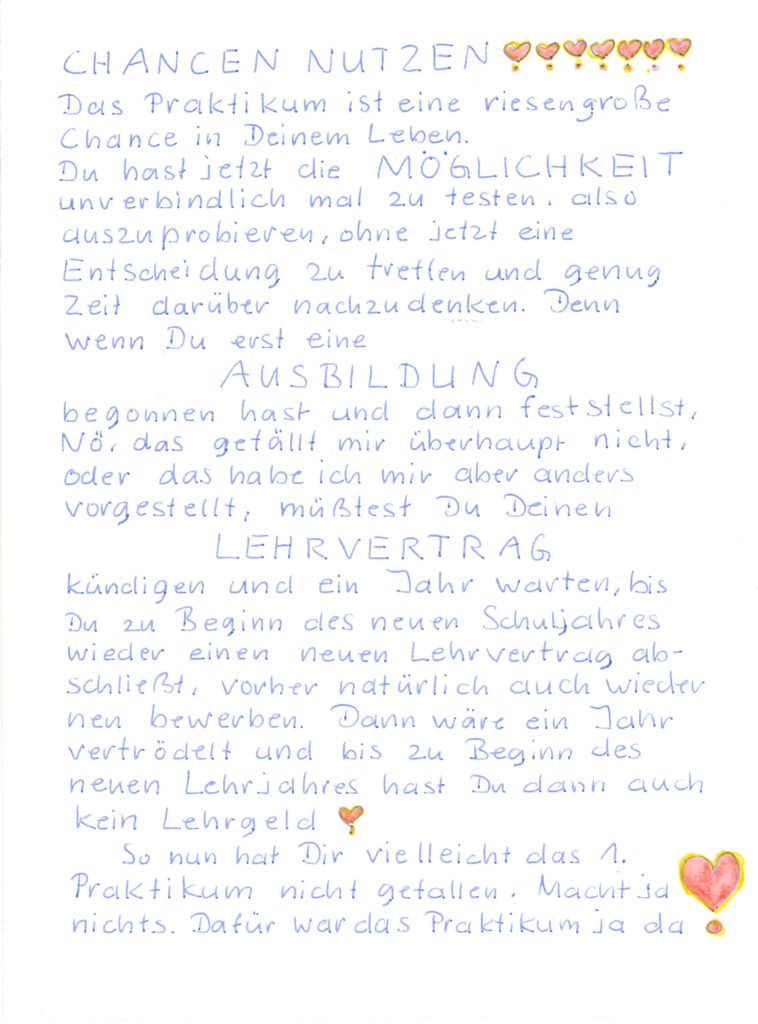 CHANCEN NUTZEN
Das Praktikum ist eine riesengroße
Chance in Deinem Leben.
Du hast jetzt die MÖGLICHKEIT
unverbindlich mal zu testen, also
auszuprobieren, ohne jetzt eine
Entscheidung zu treffen und genug
Zeit darüber nachzudenken. Denn
wenn Du erst eine
AUSBILDUNG
begonnen hast und dann feststellst,
Nö, das gefällt mir überhaupt nicht,
oder das habe ich mir aber anders
vorgestellt, müßtest Du Deinen
LEHRVERTRAG
kündigen und ein Jahr warten, bis
Du zu Beginn des neuen Schuljahres
wieder einen neuen Lehrvertrag ab-
schließt, vorher natürlich auch wieder
neu bewerben. Dann wäre ein Jahr
vertrödelt und bis zu Beginn des
neuen Lehrjahres hast Du dann auch
kein Lehrgeld
So nun hat Dir vielleicht das 1.
Praktikum nicht gefallen. Macht ja
nichts. Dafür war das Praktikum ja da